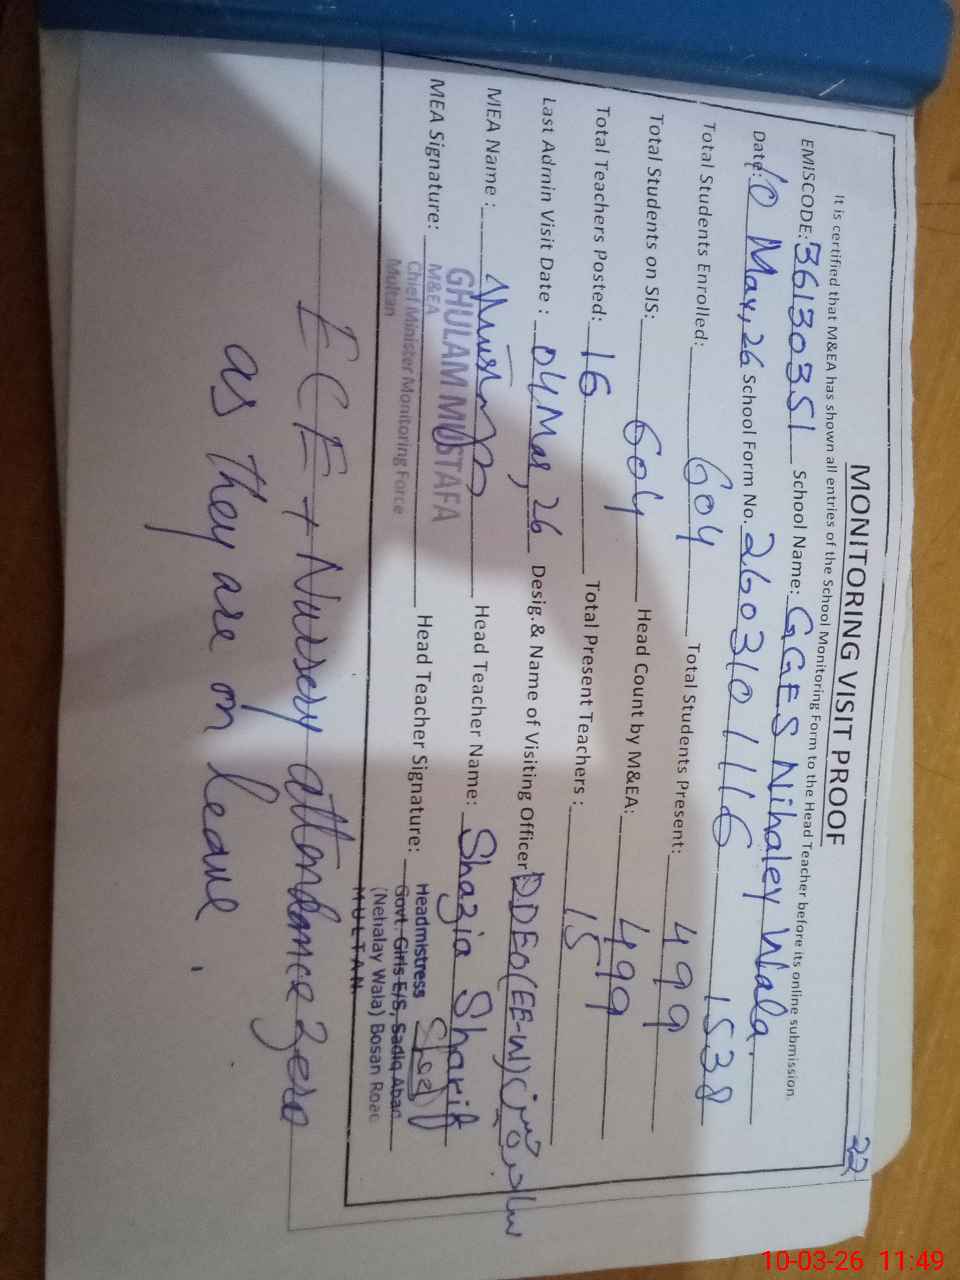 22
MONITORING VISIT PROOF
It is certified that M&EA has shown all entries of the School Monitoring Form to the Head Teacher before its online submission.
EMISCODE: 36130351 School Name: GGES Nihaley Wala.
Date: 10 Mar, 26 School Form No. 2603101116 1538
Total Students Enrolled: 604 Total Students Present: 499
Total Students on SIS: 604 Head Count by M&EA: 499
Total Teachers Posted: 16 Total Present Teachers : 15
Last Admin Visit Date : 04 Mar, 26 Desig.& Name of Visiting Officer DDEO(EE-W)
MEA Name : Head Teacher Name: Shazia Sharif
GHULAM MUSTAFA
MEA Signature: Head Teacher Signature:
M&EA
Chief Minister Monitoring Force
Multan
Headmistress
Govt. Girls E/S, Sadiq Abad
(Nehalay Wala) Bosan Road
MULTAN
ECE + Nursery attendance zero
as they are on leave.
10-03-26 11:49